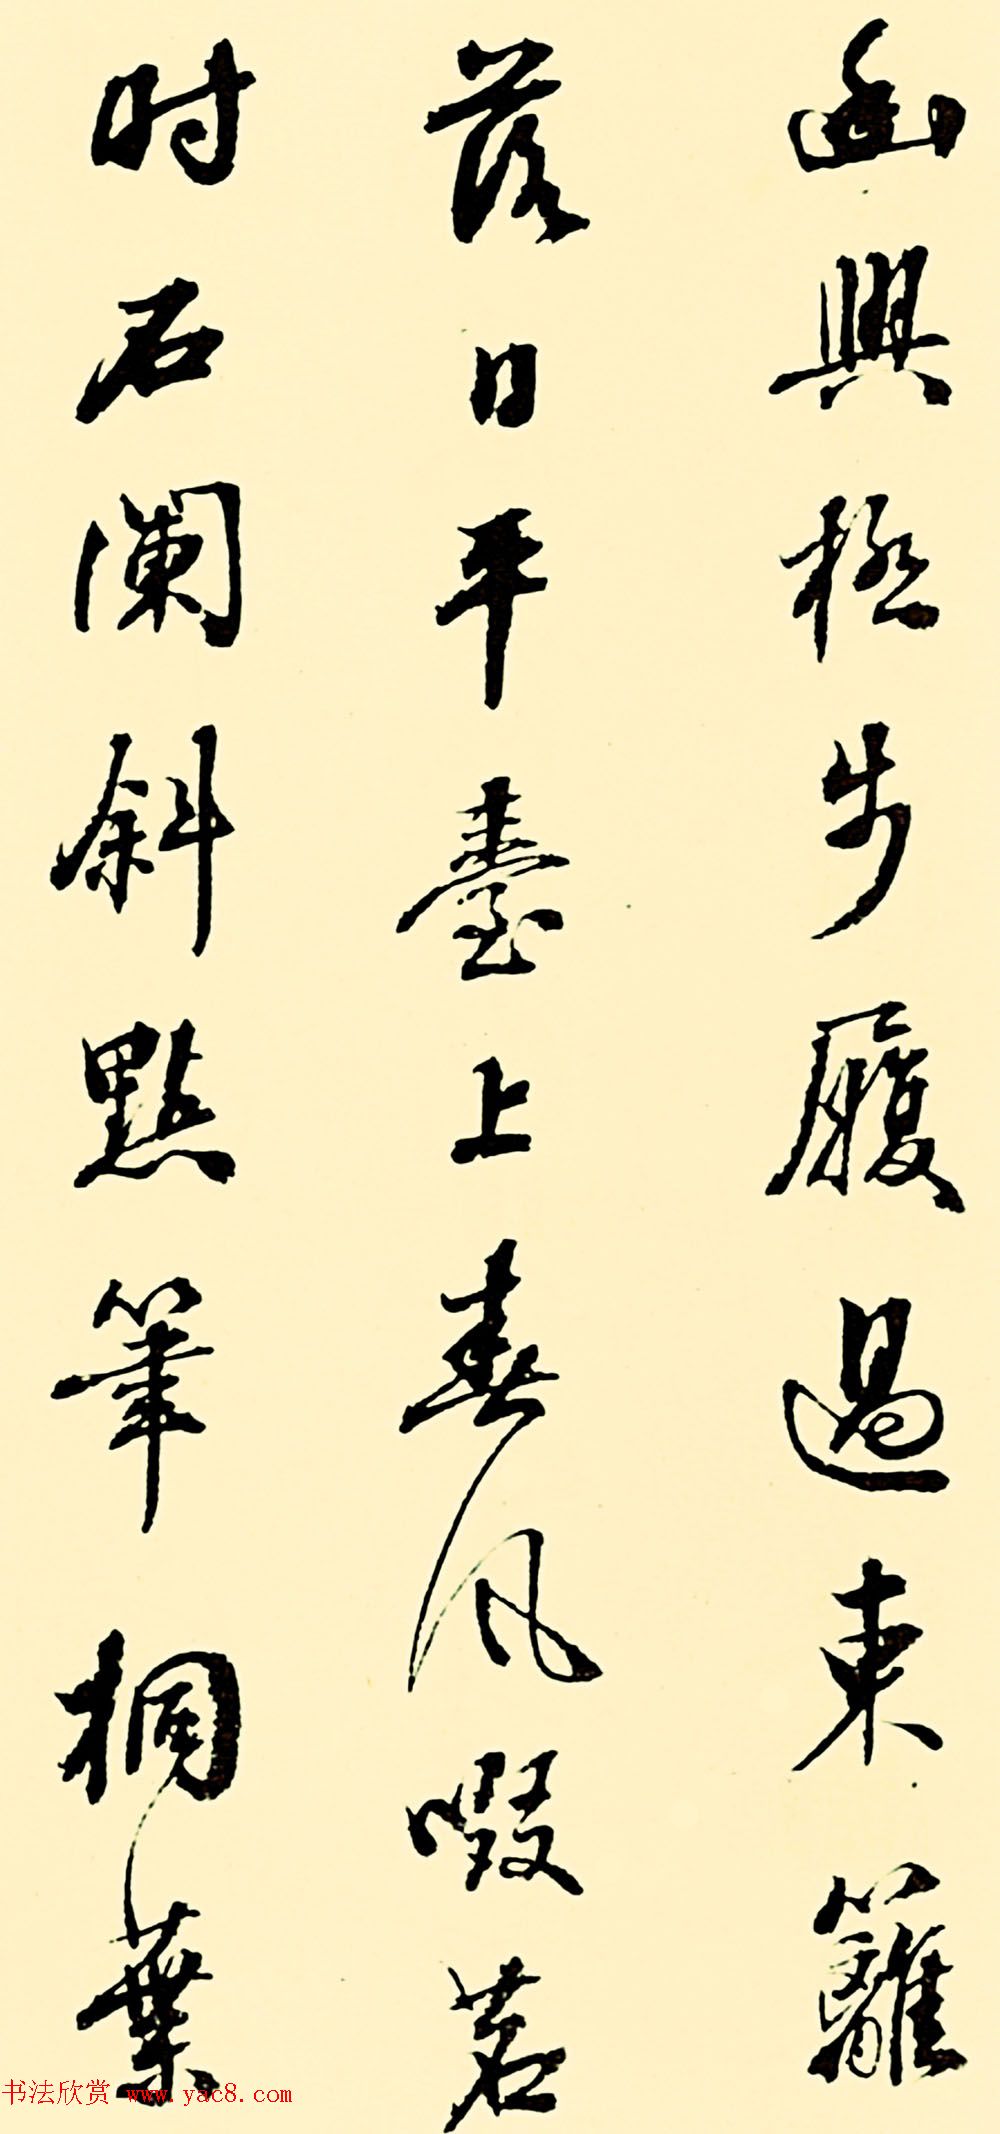 幽興極步屧過東籬
落日平臺上春風啜茗
时石闌斜點筆桐葉
书法欣赏 www.yac8.com